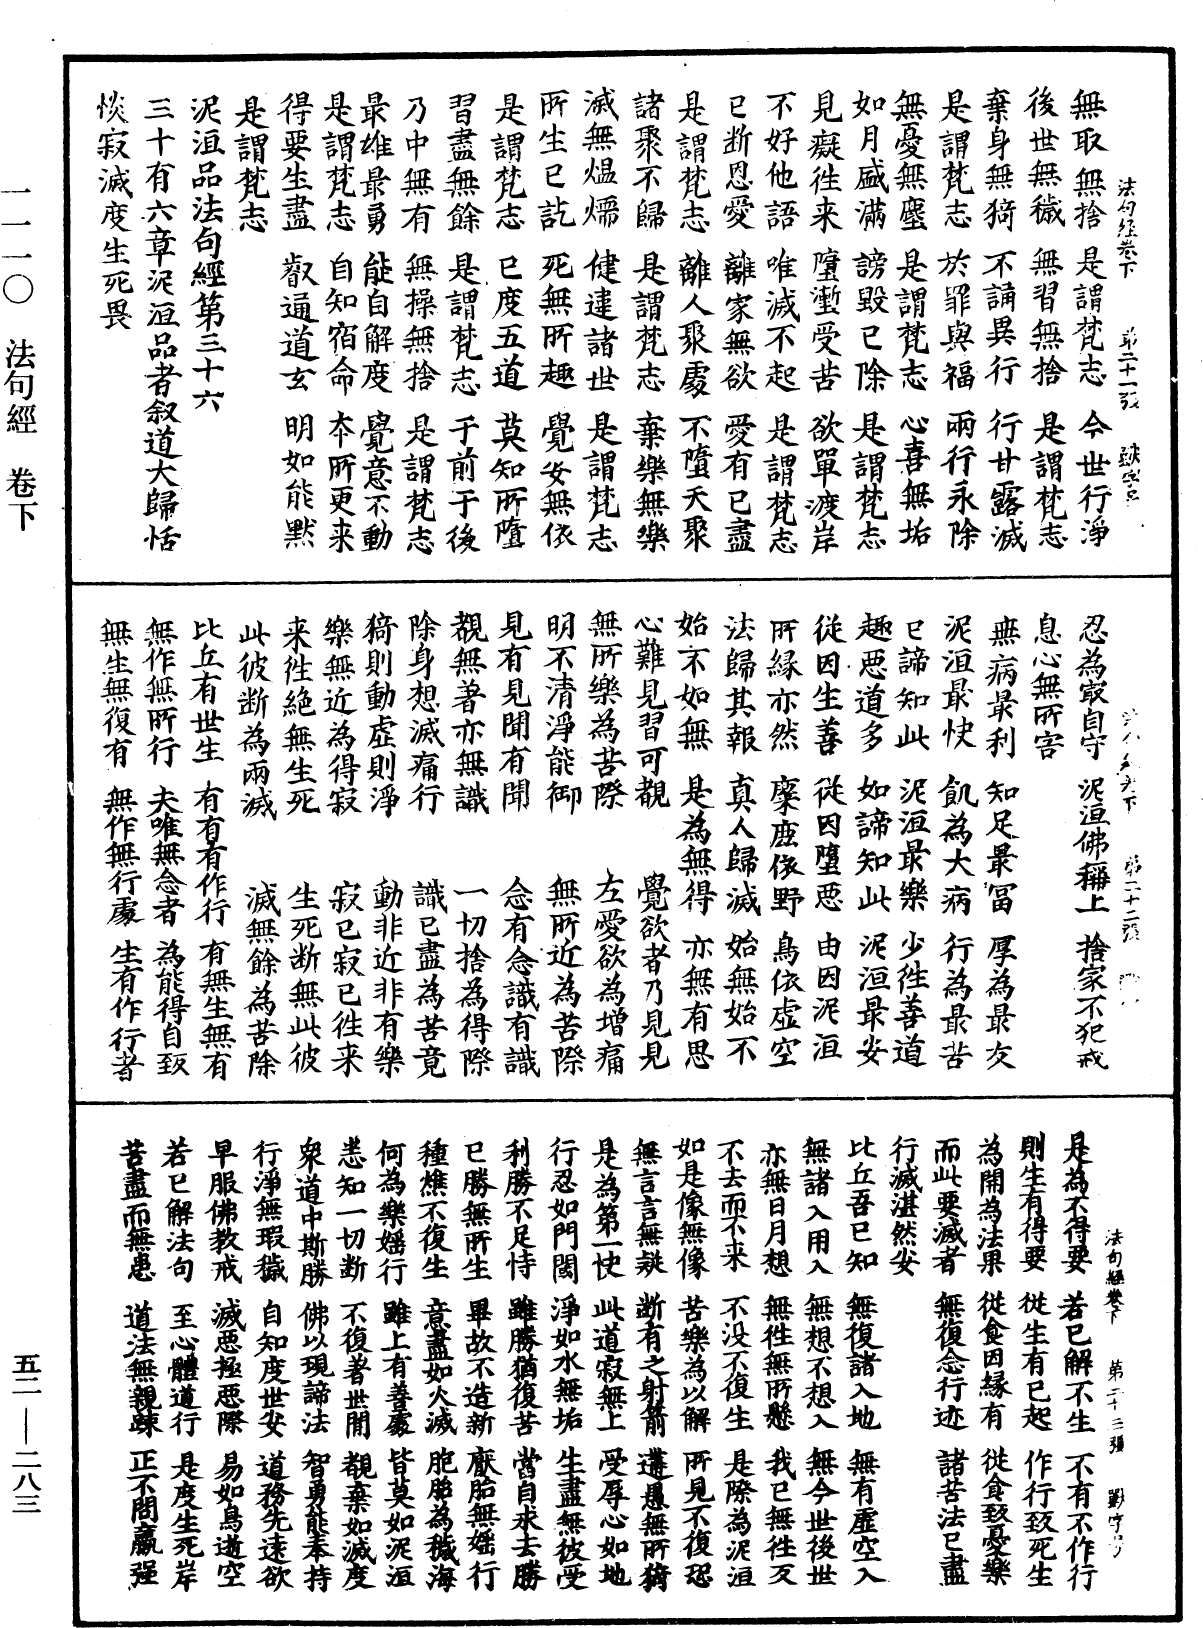 一一一〇 法句經 卷下
五二—二八三
法句經卷下 第二十一張
無取無捨 是謂梵志 今世行淨
後世無穢 無習無捨 是謂梵志
棄身無猗 不誦異行 行甘露滅
是謂梵志 於罪與福 兩行永除
無憂無塵 是謂梵志 心喜無垢
如月盛滿 謗毀已除 是謂梵志
見癡往来 墮壍受苦 欲單渡岸
不好他語 唯滅不起 是謂梵志
已斷恩愛 離家無欲 愛有已盡
是謂梵志 離人聚處 不墮天聚
諸聚不歸 是謂梵志 棄樂無樂
滅無熅燸 健違諸世 是謂梵志
所生已訖 死無所趣 覺安無依
是謂梵志 已度五道 莫知所墮
習盡無餘 是謂梵志 于前于後
乃中無有 無操無捨 是謂梵志
最雄最勇 能自解度 覺意不動
是謂梵志 自知宿命 本所更来
得要生盡 叡通道玄 明如能默
是謂梵志
泥洹品法句經第三十六
三十有六章泥洹品者叙道大歸恬
惔寂滅度生死畏
第二十二張
忍為寂自守 泥洹佛稱上 捨家不犯戒
息心無所害
無病最利 知足最冨 厚為最友
泥洹最快 飢為大病 行為最苦
已諦知此 泥洹最樂 少往善道
趣惡道多 如諦知此 泥洹最安
從因生善 從因墮惡 由因泥洹
所緣亦然 麋鹿依野 鳥依虛空
法歸其報 真人歸滅 始無始不
始不如無 是為無得 亦無有思
心難見習可覩 覺欲者乃見見
無所樂為苦際 在愛欲為增痛
明不清淨能御 無所近為苦際
見有見聞有聞 念有念識有識
覩無著亦無識 一切捨為得際
除身想滅痛行 識已盡為苦竟
猗則動虛則淨 動非近非有樂
樂無近為得寂 寂已寂已往来
来往絶無生死 生死斷無此彼
此彼斷為兩滅 滅無餘為苦除
比丘有世生 有有有作行 有無生無有
無作無所行 夫唯無念者 為能得自致
無生無復有 無作無行處 生有作行者
法句經卷下 第二十三張
是為不得要 若已解不生 不有不作行
則生有得要 從生有已起 作行致死生
為開為法果 從食因緣有 從食致憂樂
而此要滅者 無復念行迹 諸苦法已盡
行滅湛然安
比丘吾已知 無復諸入地 無有虛空入
無諸入用入 無想不想入 無今世後世
亦無日月想 無往無所懸 我已無往反
不去而不来 不没不復生 是際為泥洹
如是像無像 苦樂為以解 所見不復恐
無言言無疑 斷有之射箭 遘愚無所猗
是為第一快 此道寂無上 受辱心如地
行忍如門閾 淨如水無垢 生盡無彼受
利勝不足恃 雖勝猶復苦 當自求去勝
已勝無所生 畢故不造新 厭胎無婬行
種燋不復生 意盡如火滅 胞胎為穢海
何為樂婬行 雖上有善處 皆莫如泥洹
悉知一切斷 不復著世間 都棄如滅度
衆道中斯勝 佛以現諦法 智勇能奉持
行淨無瑕穢 自知度世安 道務先遠欲
早服佛教戒 滅惡極惡際 易如鳥逝空
若已解法句 至心體道行 是度生死岸
苦盡而無患 道法無親踈 正不問羸强